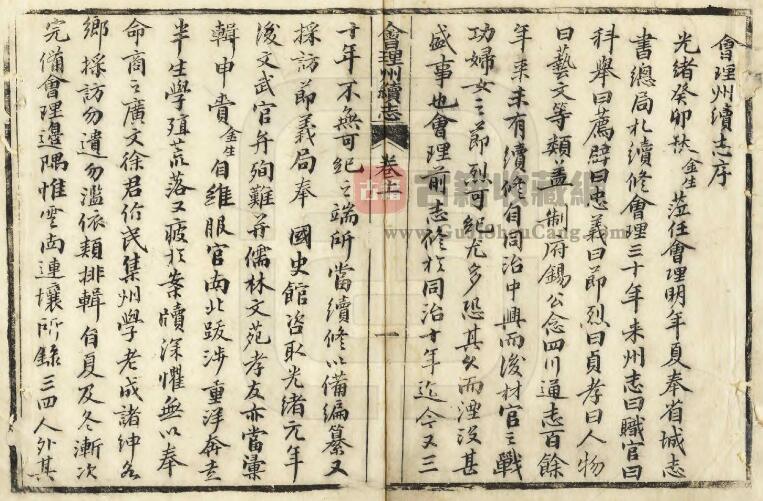 會理州續志序
光緒癸卯秋金生蒞任會理明年夏奉省城志
書總局札續修會理三十年來州志曰職官曰
科舉曰薦辟曰忠義曰節烈曰貞孝曰人物
曰藝文等類蓋制府錫公念四川通志百餘
年來未有續修自同治中興而後材官之戰
功婦女之節烈可紀尤多恐其久而湮沒甚
盛事也會理前志修於同治十年迄今又三
會理州續志 卷上 一
十年不無可紀之端所當續修以備編纂又
採訪節義局奉 國史館咨取光緒元年
後文武官弁殉難并儒林文苑孝友亦當彙
輯申賚金生自維服官南北跋涉重洋奔走
半生學殖荒落又疲於案牘深懼無以奉
命商之廣文徐君价民集州學老成諸紳各
鄉採訪勿遺勿濫依類排輯自夏及冬漸次
完備會理邊隅惟雲南連壤所錄三四人外其
古籍
古籍收藏網
www.GuJiShouCang.com